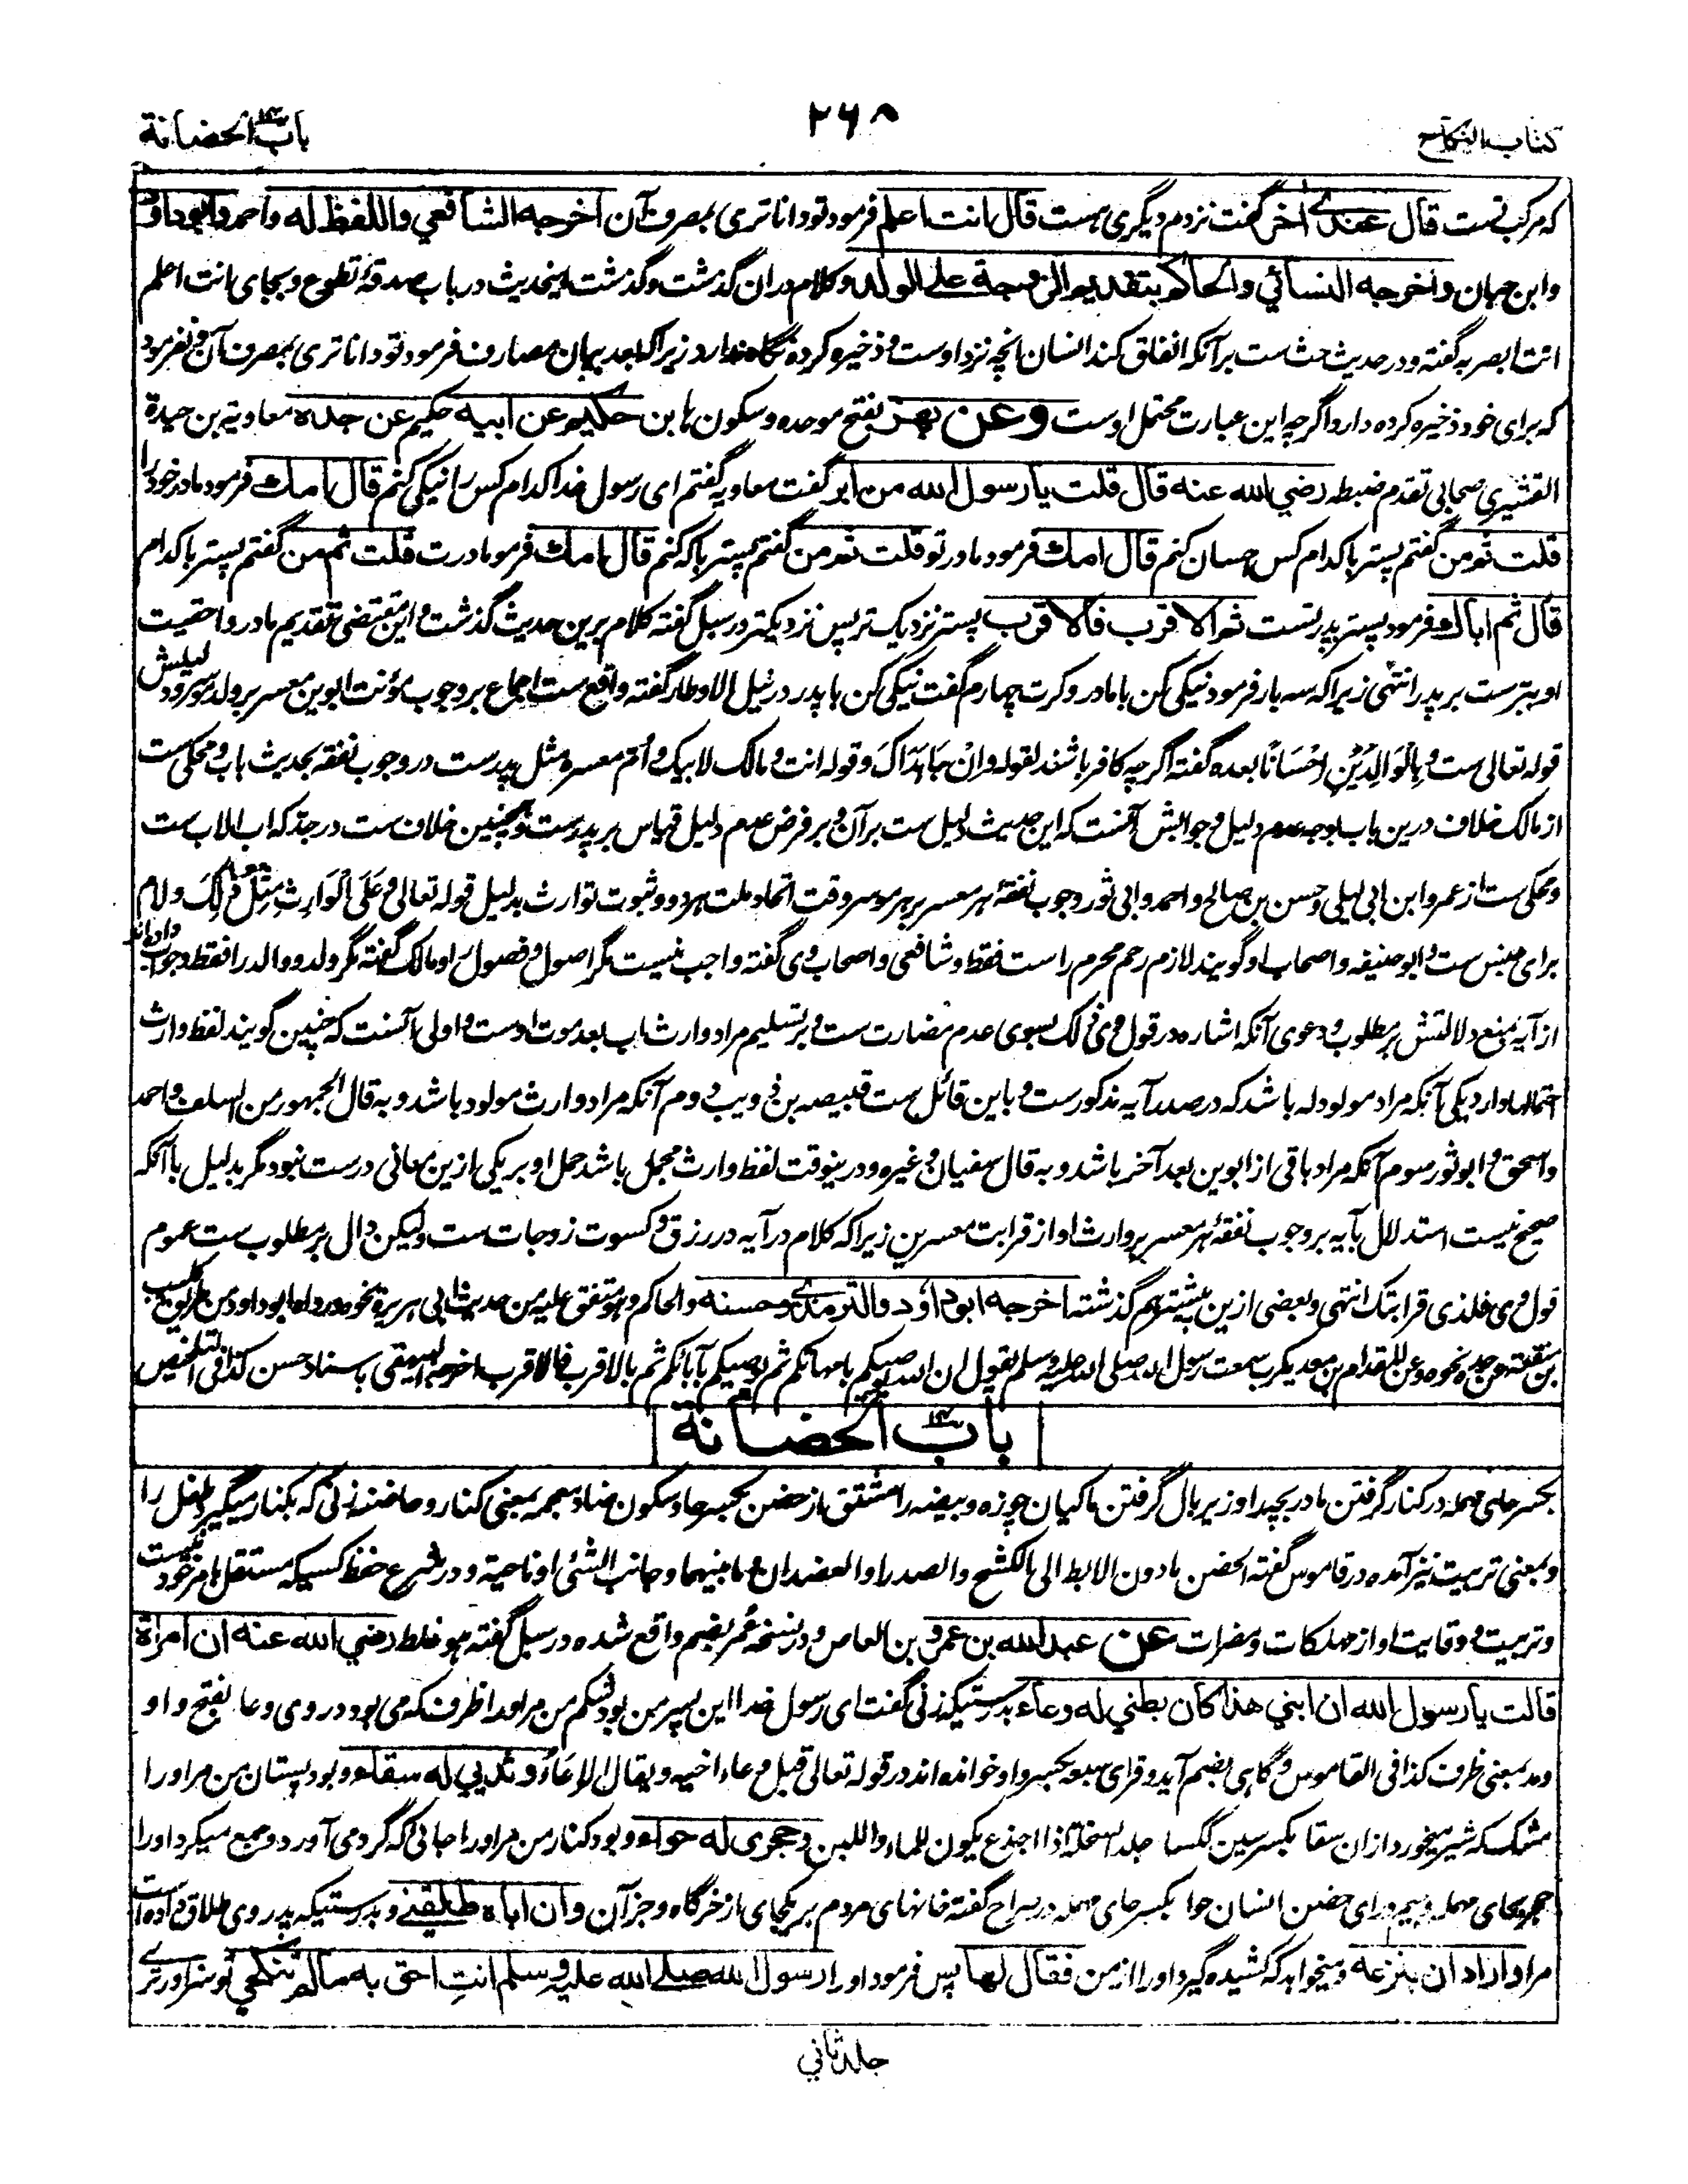 کتاب النکاح
۲۶۸
باب الحضانة
که مرکب تست قال عندی اخر گفت نزدم دیگری هست قال انت اعلم فرمود تو داناتری بمصرف آن اخرجه الشافعي واللفظ له واحمد وابوداود
وابن حبان واخرجه النسائي والحاكم بتقديم الزوجة على الولد وکلام دران گذشت و گذشت اینحدیث در باب صدقهٔ تطوع و بجای انت اعلم
انت ابصر به گفته و در حدیث حث ست بر آنکه انفاق کند انسان انچه نزد اوست و ذخیره کرده نگاه ندارد زیراکه بعد بیان مصارف فرمود تو داناتری بمصرف آن و نفرمود
که برای خود ذخیره کرده دار و اگرچه این عبارت محتمل اوست وعن بهز بفتح موحده و سکون ها بن حكيم عن ابيه حکیم عن جده معاویة بن حیدة
القشیری صحابی تقدم ضبطه رضي الله عنه قال قلت يا رسول الله من ابر گفت معاویه گفتم ای رسول خدا کدام کس را نیکی کنم قال امك فرمود مادر خود را
قلت ثم من گفتم پستر با کدام کس احسان کنم قال امك فرمود مادر تو قلت ثم من گفتم پستر با که کنم قال امك فرمود مادرت قلت ثم من گفتم پستر با کدام
قال ثم اباك فرمود پستر پدر تست ثم الاقرب فالاقرب پستر نزدیک تر پس نزدیکتر در سبل گفته کلام برین حدیث گذشت و این مقتضی تقدیم مادر و احقیت
او ببرست بر پدر انتهی زیراکه سه بار فرمود نیکی کن با مادر و کرت چهارم گفت نیکی کن با پدر در نیل الاوطار گفته واقع ست اجماع بر وجوب مؤنت ابوین معسر بر ولد موسر و دلیلش
قوله تعالی ست وبالوالدين احسانا بعده گفته اگرچه کافر باشند لقوله وان جاهداك و قوله انت ومالك لابيك و اُم معسره مثل پدرست در وجوب نفقه بحدیث باب و محکی ست
از مالک خلاف درین باب بوجه عدم دلیل و جوابش آنست که این حدیث دلیل ست برآن و بر فرض عدم دلیل قیاس بر پدرست و همچنین خلاف ست در جد که اب الاب ست
و محکی ست از عمر و ابن ابی لیلی و حسن بن صالح و احمد و ابی ثور وجوب نفقهٔ هر معسر بر هر موسر وقت اتحاد ملت هر دو و ثبوت توارث بدلیل قوله تعالی وعلى الوارث مثل ذلك و لام
برای جنس ست و ابوحنیفه و اصحاب او گویند لازم رحم محرم راست فقط و شافعی و اصحاب وی گفته واجب نیست مگر اصول و فصول را و مالک گفته مگر ولد و والد را فقط و جواب داده اند
از آیه بمنع دلالتش بر مطلوب و دعوی آنکه اشاره در قول وی ذلك بسوی عدم مضارت ست و بر تسلیم مراد وارث اب بعد موت اوست و اولی آنست که چنین گویند لفظ وارث
احتمالها دارد یکی آنکه مراد مولود له باشد که در صدر آیه مذکورست و باین قائل ست قبیصه بن ذویب دوم آنکه مراد وارث مولود باشد و به قال الجمهور من السلف و احمد
و اسحق و ابوثور سوم آنکه مراد باقی از ابوین بعد آخر باشد و به قال سفیان و غیره و درینوقت لفظ وارث مجمل باشد حمل او بر یکی ازین معانی درست نبود مگر بدلیل با آنکه
صحیح نیست استدلال بآیه بر وجوب نفقهٔ هر معسر بر وارث او از قرابت معسرین زیراکه کلام در آیه در رزق و کسوت زوجات ست ولیکن دال بر مطلوب ست عموم
قول وی فلذی قرابتک انتهی و بعضی ازین پیشتر هم گذشته اخرجه ابوداؤد والترمذي وحسنه والحاکم وهو متفق علیه من حدیث ابی هریرة نحوه و رواه ابوداود من طریق کلیب
بن منفعة عن جده نحوه و عن المقدام بن معدیکرب سمعت رسول الله صلی الله علیه وسلم یقول ان الله یوصیکم بامهاتکم ثم یوصیکم بآبائکم ثم بالاقرب فالاقرب اخرجه البیهقی باسناد حسن کذا فی التلخیص
باب الحضانة
بکسر حای مهمله در کنار گرفتن مادر بچه را و زیر بال گرفتن ماکیان چوزه و بیضه را مشتق از حضن بکسر حا و سکون ضاد معجمه بمعنی کنار و حاضنه زنی که بکنار میگیرد طفل را
و بمعنی تربیت نیز آمده در قاموس گفته الحضن مادون الابط الی الکشح والصدر او العضدان و ما بینهما وجانب الشئ او ناحیة و در شرع حفظ کسیکه مستقل بامر خود نیست
و تربیت و وقایت او از مهلکات و مضرات عن عبدالله بن عمرو بن العاص و در نسخه عُمر بضم واقع شده در سبل گفته هو غلط رضي الله عنه ان امراة
قالت يا رسول الله ان ابني هذا كان بطني له وعاء بدرستیکه زنی گفت ای رسول خدا این پسر من بود شکم من مر او را ظرف که می بود در وی وعا بفتح واو
و مد بمعنی ظرف کذا فی القاموس و گاهی بضم آید و قرای سبعه بکسر واو خوانده اند در قوله تعالی قبل وعاء اخیه ویقال الاعاء وثديي له سقاء و بود پستان من مر او را
مشک که شیر میخورد ازان سقا بکسر سین ککسا جلد السخلة اذا اجذع یکون للماء واللبن وحجري له حواء و بود کنار من مر او را جائی که گرد می آورد و جمع میکرد او را
حجر بحای مهمله و جیم و رای حضن انسان حوا بکسر حای مهمله در صراح گفته خانهای مردم بر یکجای از خرگاه و جز آن وان اباه طلقني و بدرستیکه پدر وی طلاق داده است
مرا واراد ان ينزعه مني و میخواهد که کشیده گیرد او را از من فقال لها پس فرمود او را رسول الله صلى الله عليه وسلم انت احق به مالم تنكحي تو سزاورتری
جلد ثاني